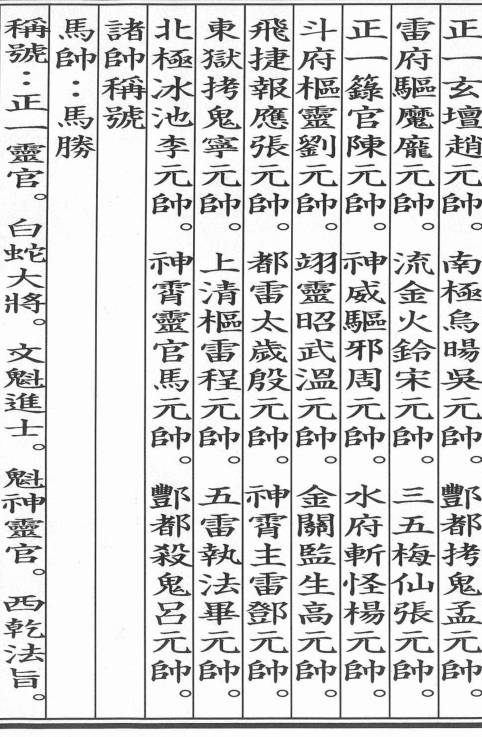 正一玄壇趙元帥。南極烏暘吳元帥。酆都拷鬼孟元帥。
雷府驅魔龐元帥。流金火鈴宋元帥。三五梅仙張元帥。
正一籙官陳元帥。神威驅邪周元帥。水府斬怪楊元帥。
斗府樞靈劉元帥。翊靈昭武溫元帥。金闕監生高元帥。
飛捷報應張元帥。都雷太歲殷元帥。神霄主雷鄧元帥。
東獄拷鬼寧元帥。上清樞雷程元帥。五雷執法畢元帥。
北極冰池李元帥。神霄靈官馬元帥。酆都殺鬼呂元帥。
諸帥稱號
馬帥：馬勝
稱號：正一靈官。白蛇大將。文魁進士。魁神靈官。西乾法旨。